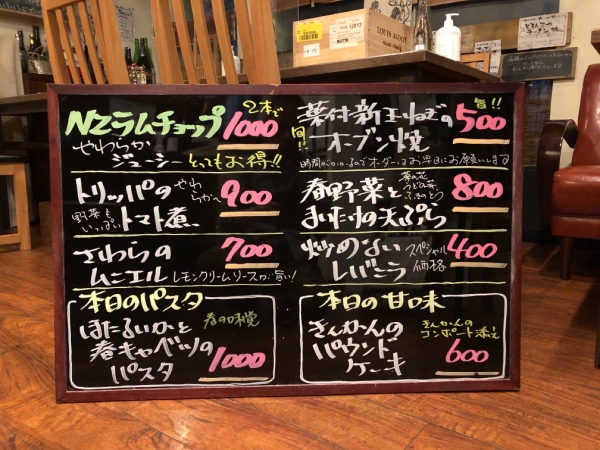 NZラムチョップ 2本で 1000
やわらか
ジューシー とってもお得!!
トリッパの やわらか〜
野菜もいっぱい トマト煮 900
さわらの
ムニエル 700
レモンクリームソースが旨い!
本日のパスタ
ほたるいかと 春の味覚
春キャベツの
パスタ 1000
葉付新玉ねぎの 旨!!
旬!! オーブン焼 500
時間がかかるのでオーダーはお早目にお願いします
春野菜と 菜の花
ふきのとう
まいたけの天ぷら 800
炒めない スペシャル
レバニラ 価格 400
本日の甘味
きんかんの
パウンド
ケーキ
きんかんの
コンポート添え
600
LOUIS JADOT